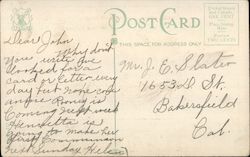 POST CARD
THIS SPACE FOR ADDRESS ONLY
Dear John
Why don't
you write we
looked for a
card or letter every
day but none
Coming
Henrietta is
going to make her
first Communion
next Sunday Helen
Mr. J. E. Slater
1653 D St.
Bakersfield
Cal.